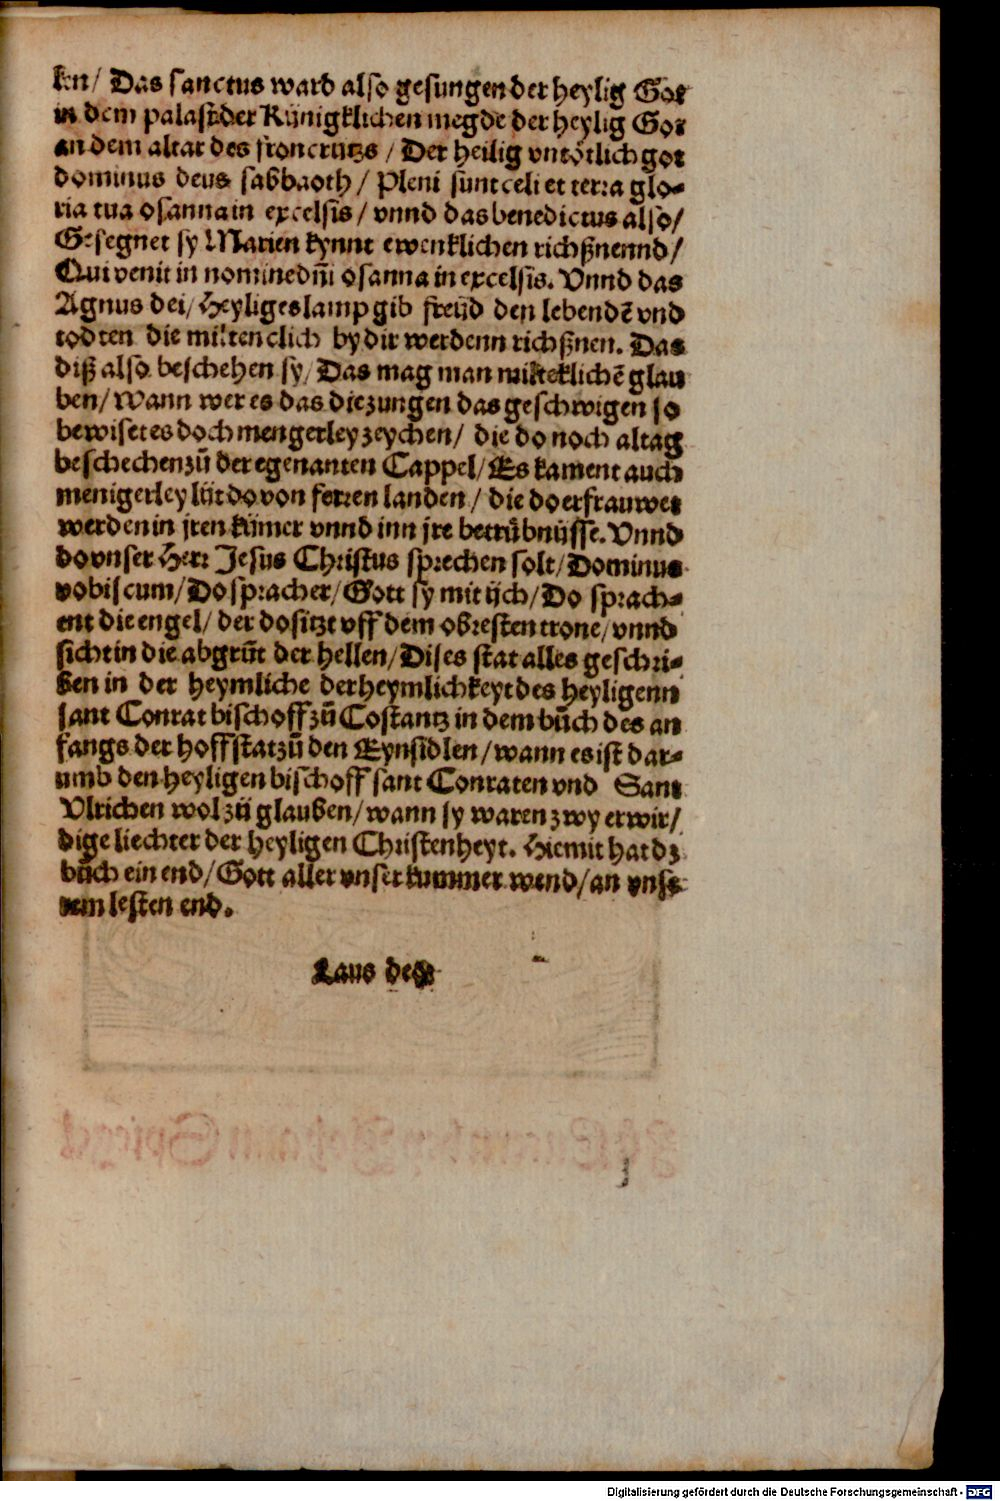 ken/ Das sanctus ward also gesungen der heylig Got
in dem palast der Künigklichen megde der heylig Got
an dem altar des froncrutzs / Der heilig vntötlich got
dominus deus sabbaoth / Pleni sunt celi et terra glo-
ria tua osanna in excelsis / vnnd das benedictus also/
Gesegnet sy Marien kynnt ewenklichen richßnennd/
Qui venit in nomine dn̄i osanna in excelsis. Vnnd das
Agnus dei/ Heyliges lamp gib freüd den lebendē vnd
todten die miltenclich by dir werdenn richßnen. Das
diß also beschehen sy/ Das mag man milteklichē glau
ben/ Wann wer es das die zungen das geschwigen so
bewiset es doch mengerley zeychen/ die do noch altag
beschechen zů der egenanten Cappel/ Es kament auch
menigerley lüt do von ferren landen / die do erfrauwet
werden in jren kümer vnnd inn jre betrübnüsse. Vnnd
do vnser Herr Jesus Christus sprechen solt/ Dominus
vobiscum/ Do sprach er/ Gott sy mit üch/ Do sprach-
ent die engel/ der do sitzt vff dem obresten trone/ vnnd
sicht in die abgrüt der hellen/ Dises stat alles geschri-
ben in der heymliche der heymlichkeyt des heyligenn
sant Conrat bischoff zů Costantz in dem bůch des an
fangs der hoffstat zů den Eynsidlen/ wann es ist dar-
umb den heyligen bischoff sant Conraten vnd Sant
Vlrichen wol zů glauben/ wann sy waren zwy erwir/
dige liechter der heyligen Christenheyt. Hiemit hat dz
bůch ein end/ Gott aller vnser kummer wend/ an vnse
rem lesten end.
Laus deo
Digitalisierung gefördert durch die Deutsche Forschungsgemeinschaft - DFG